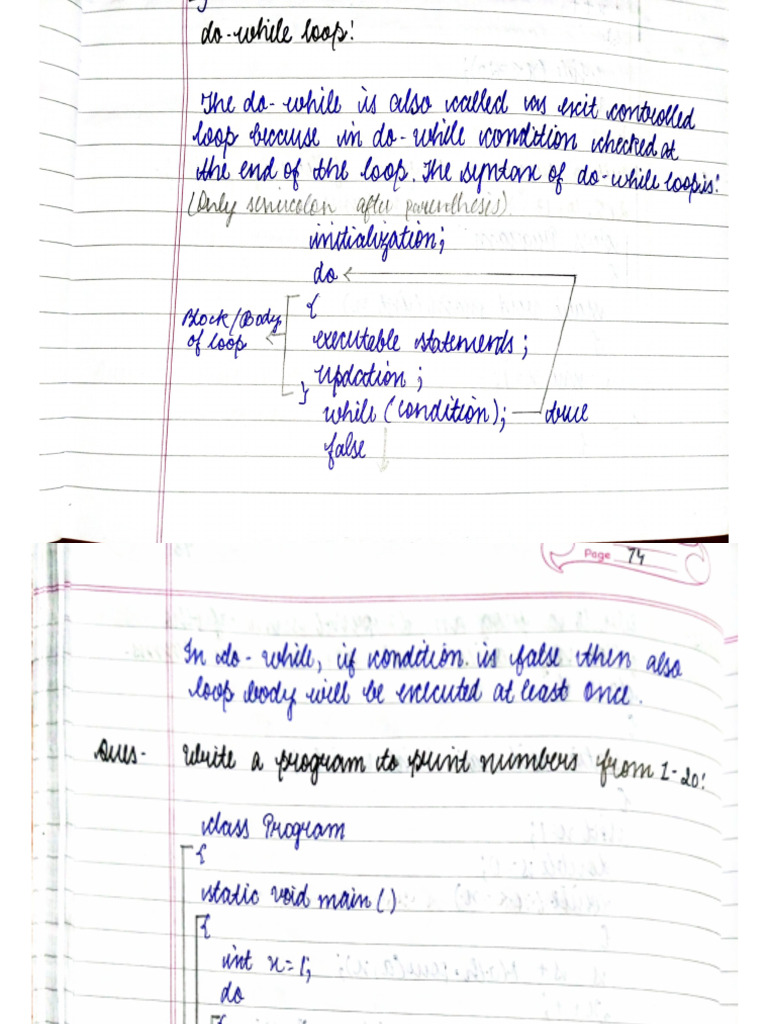 do-while loop:
The do-while is also called as exit controlled
loop because in do-while condition checked at
the end of the loop. The syntax of do-while loop is:
(Only semicolon after parenthesis).
initialization;
do
{
Block/Body
of loop
executable statements;
updation;
}
while (condition); true
false
Page 74
In do-while, if condition is false then also
loop body will be executed at least once.
Ques- Write a program to print numbers from 1-20:
class Program
{
static void main()
{
int x=1;
do
{